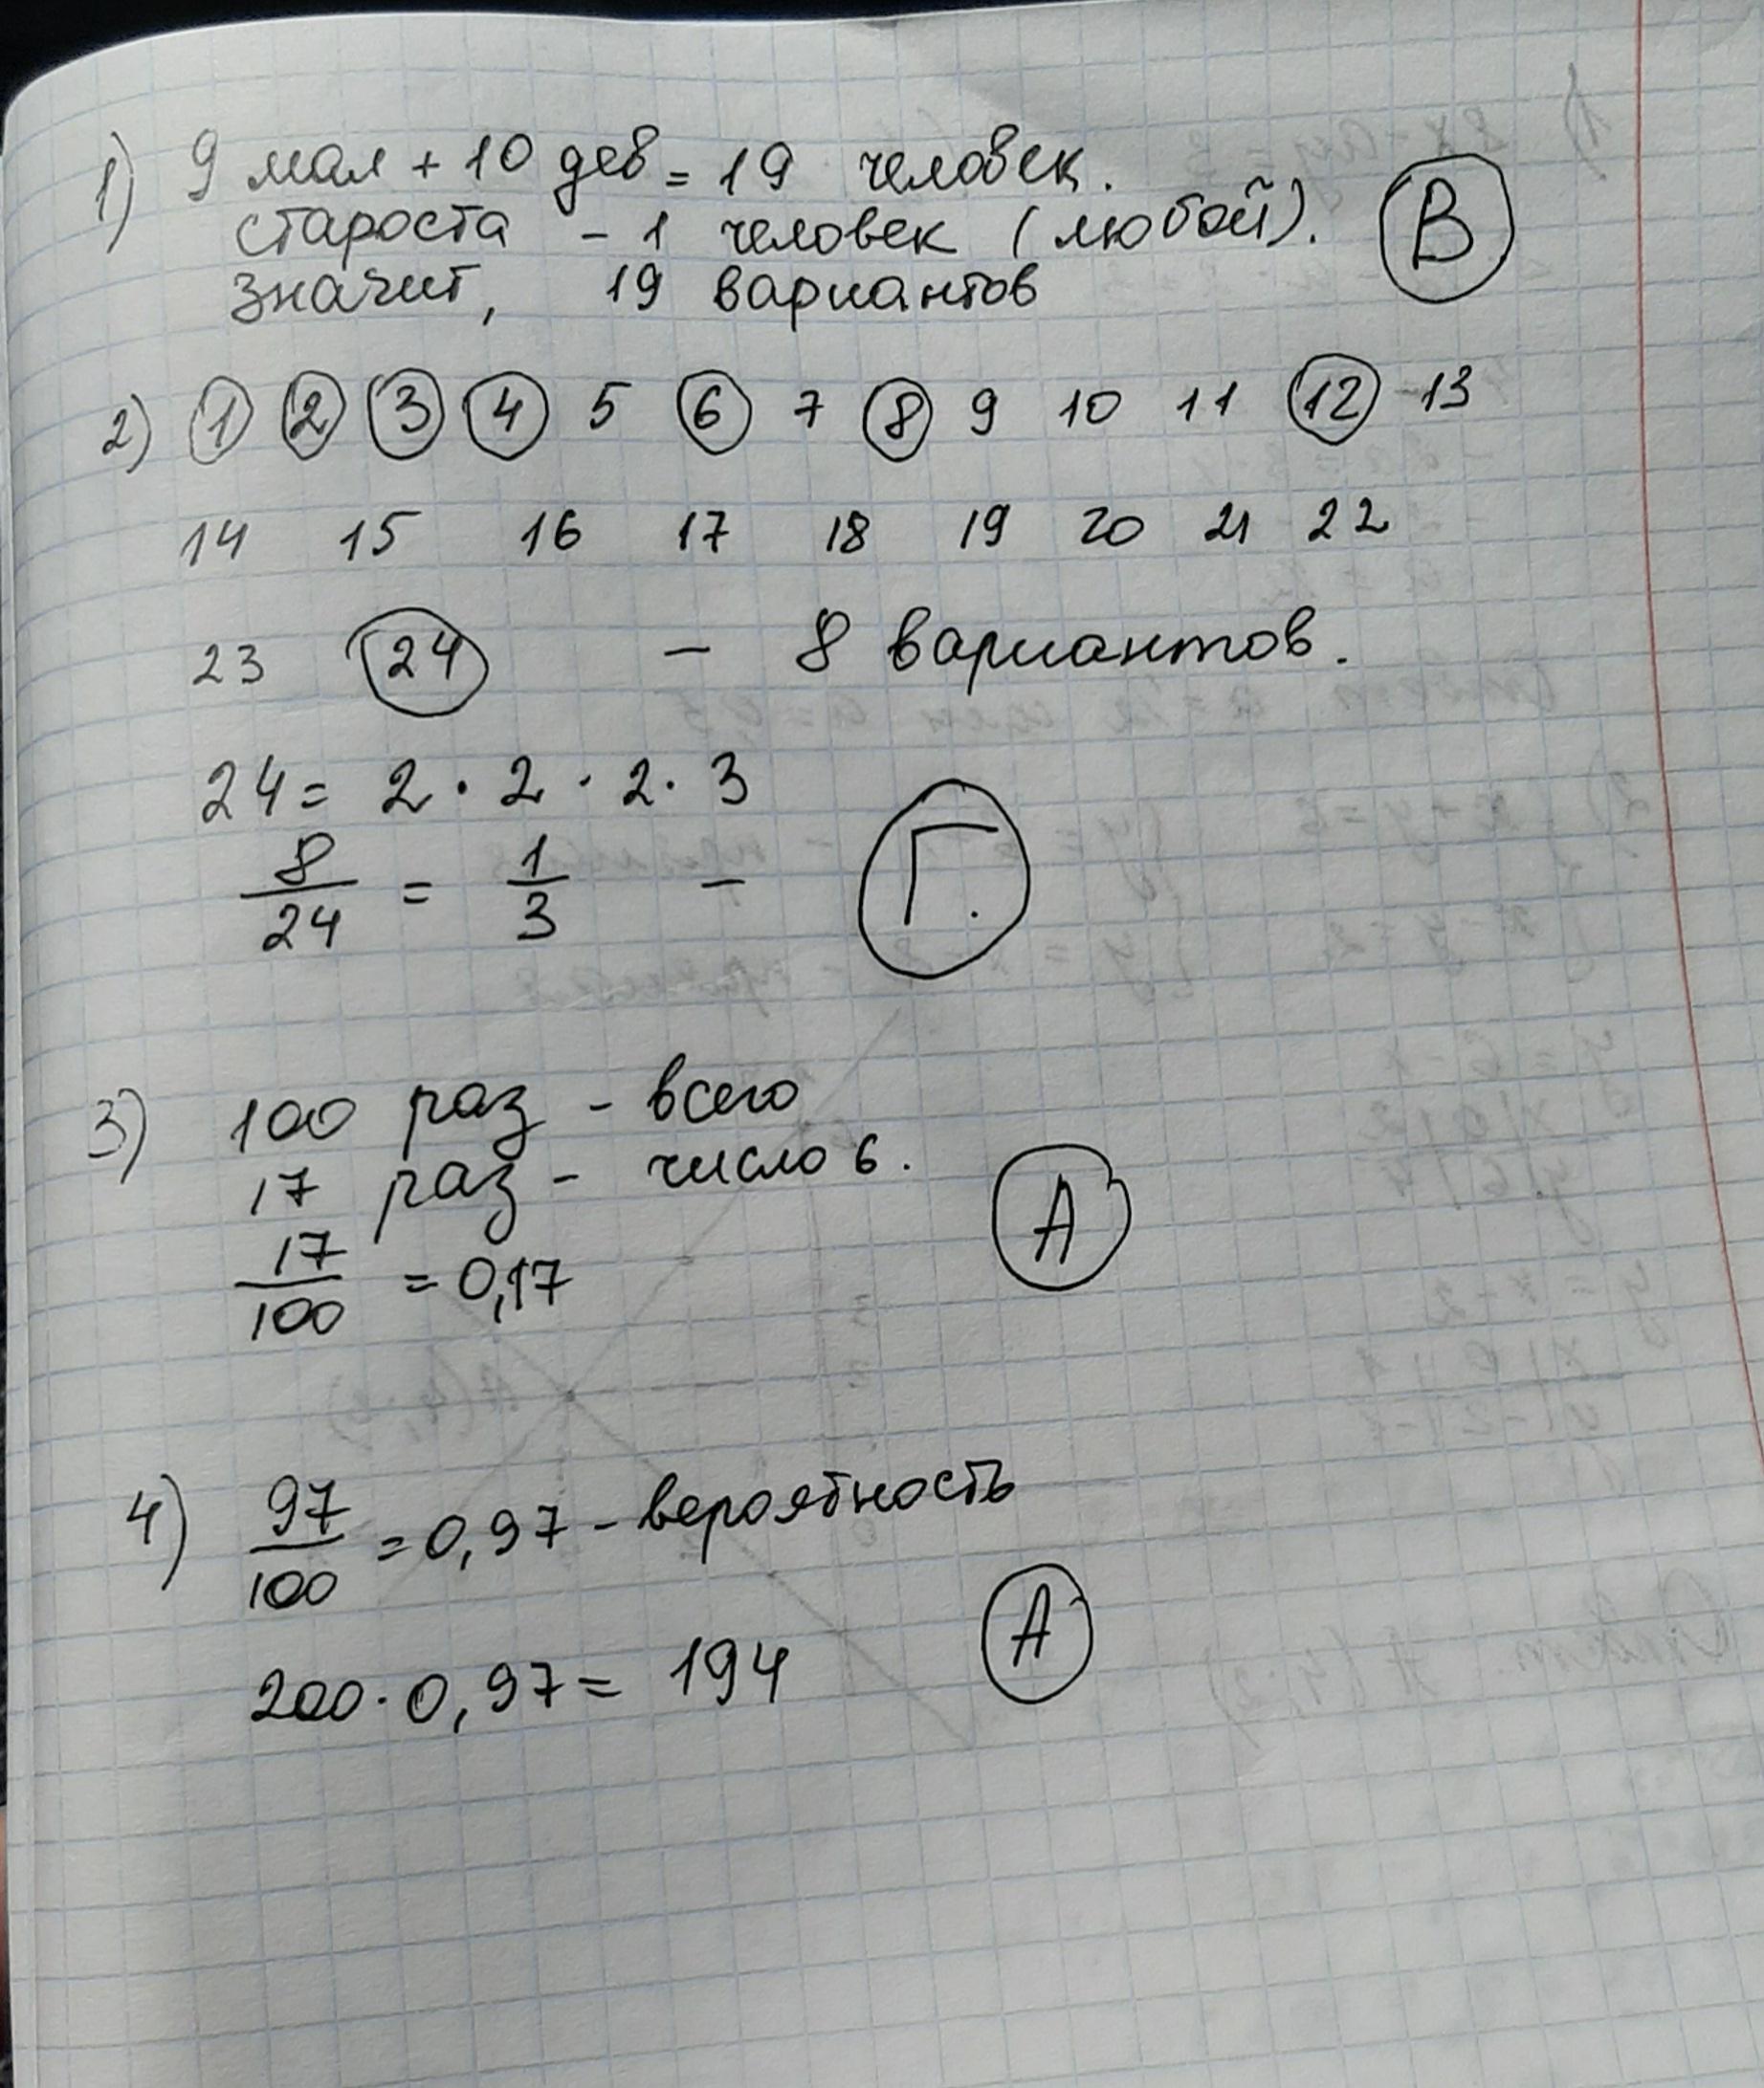 1) 9 мал + 10 дев = 19 человек.
староста - 1 человек (любой). В
значит, 19 вариантов
2) 1 2 3 4 5 6 7 8 9 10 11 12 13
14 15 16 17 18 19 20 21 22
23 24 - 8 вариантов.
24 = 2 · 2 · 2 · 3
8/24 = 1/3 - Г.
3) 100 раз - всего
17 раз - число 6. А
17/100 = 0,17
4) 97/100 = 0,97 - вероятность
200 · 0,97 = 194 А